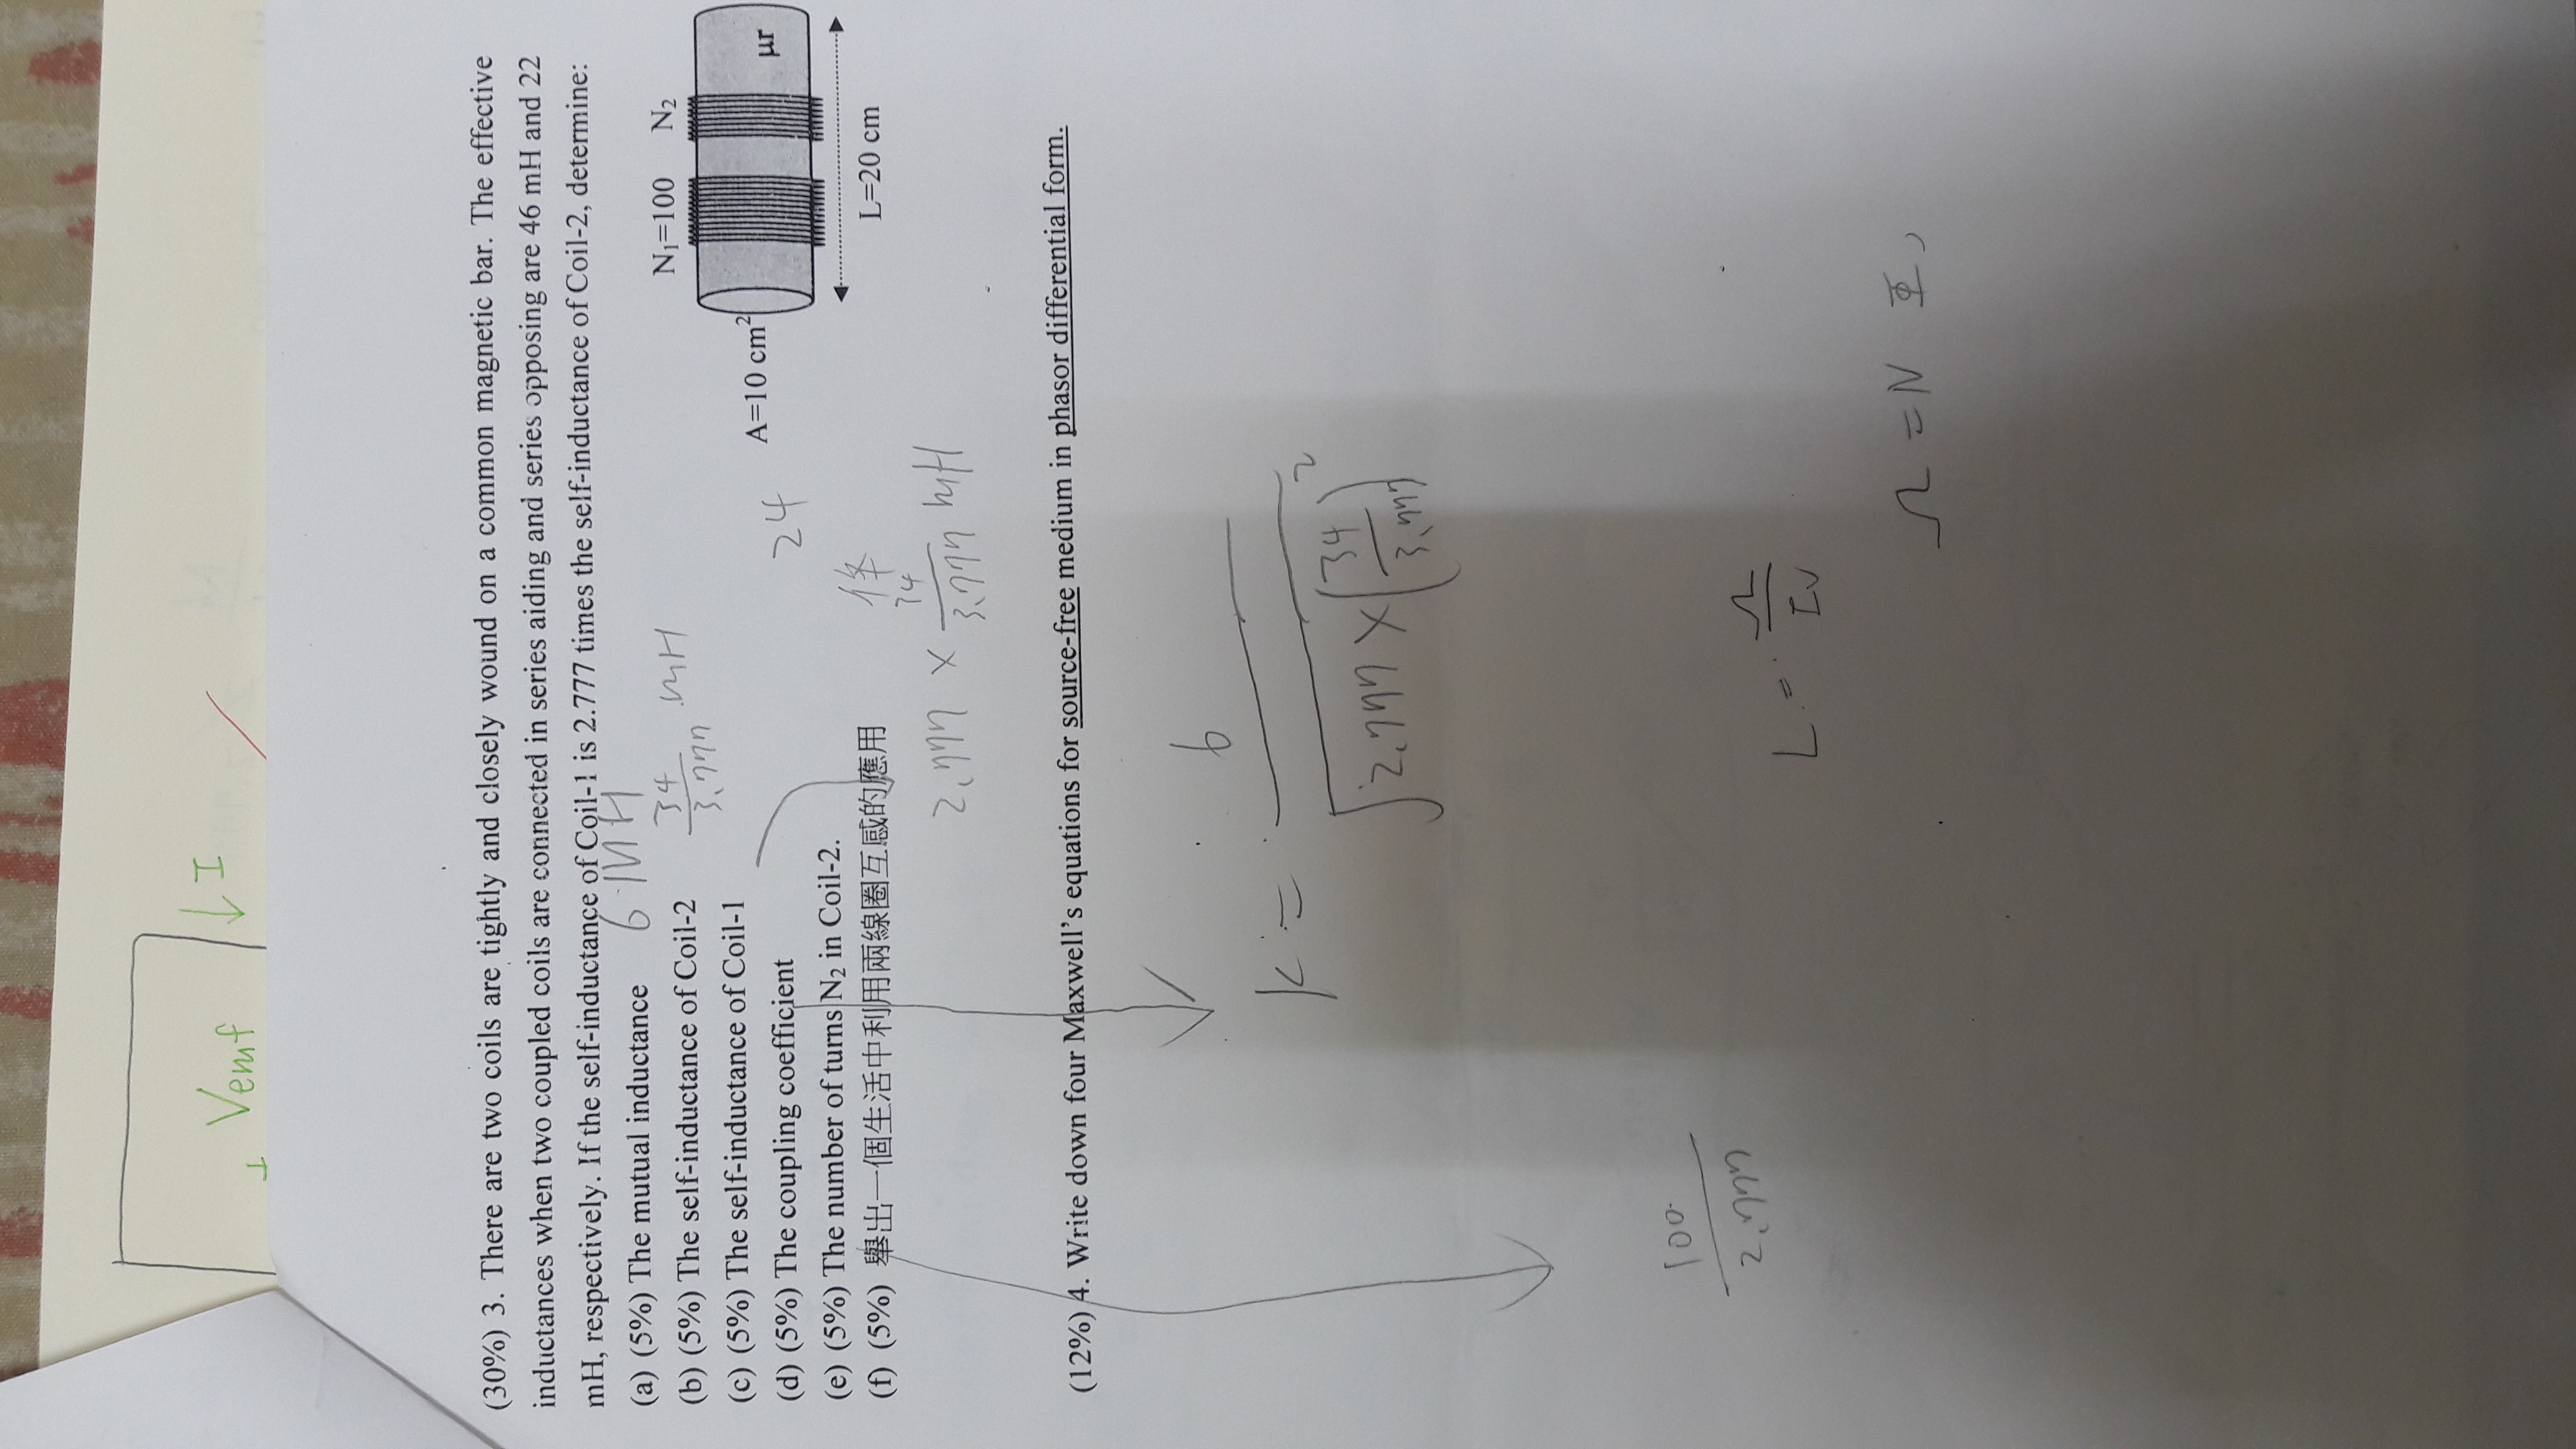 Vemf
I
(30%) 3. There are two coils are tightly and closely wound on a common magnetic bar. The effective
inductances when two coupled coils are connected in series aiding and series opposing are 46 mH and 22
mH, respectively. If the self-inductance of Coil-1 is 2.777 times the self-inductance of Coil-2, determine:
(a) (5%) The mutual inductance 6 mH
(b) (5%) The self-inductance of Coil-2 34/3.777 mH
(c) (5%) The self-inductance of Coil-1
(d) (5%) The coupling coefficient
(e) (5%) The number of turns N₂ in Coil-2.
(f) (5%) 舉出一個生活中利用兩線圈互感的應用
N₁=100 N₂
A=10 cm²
μr
L=20 cm
24
2.777 × 34/3.777 mH
(12%) 4. Write down four Maxwell's equations for source-free medium in phasor differential form.
K = 6/√2.777×(34/3.777)²
100/2.777
L =
= N Φ